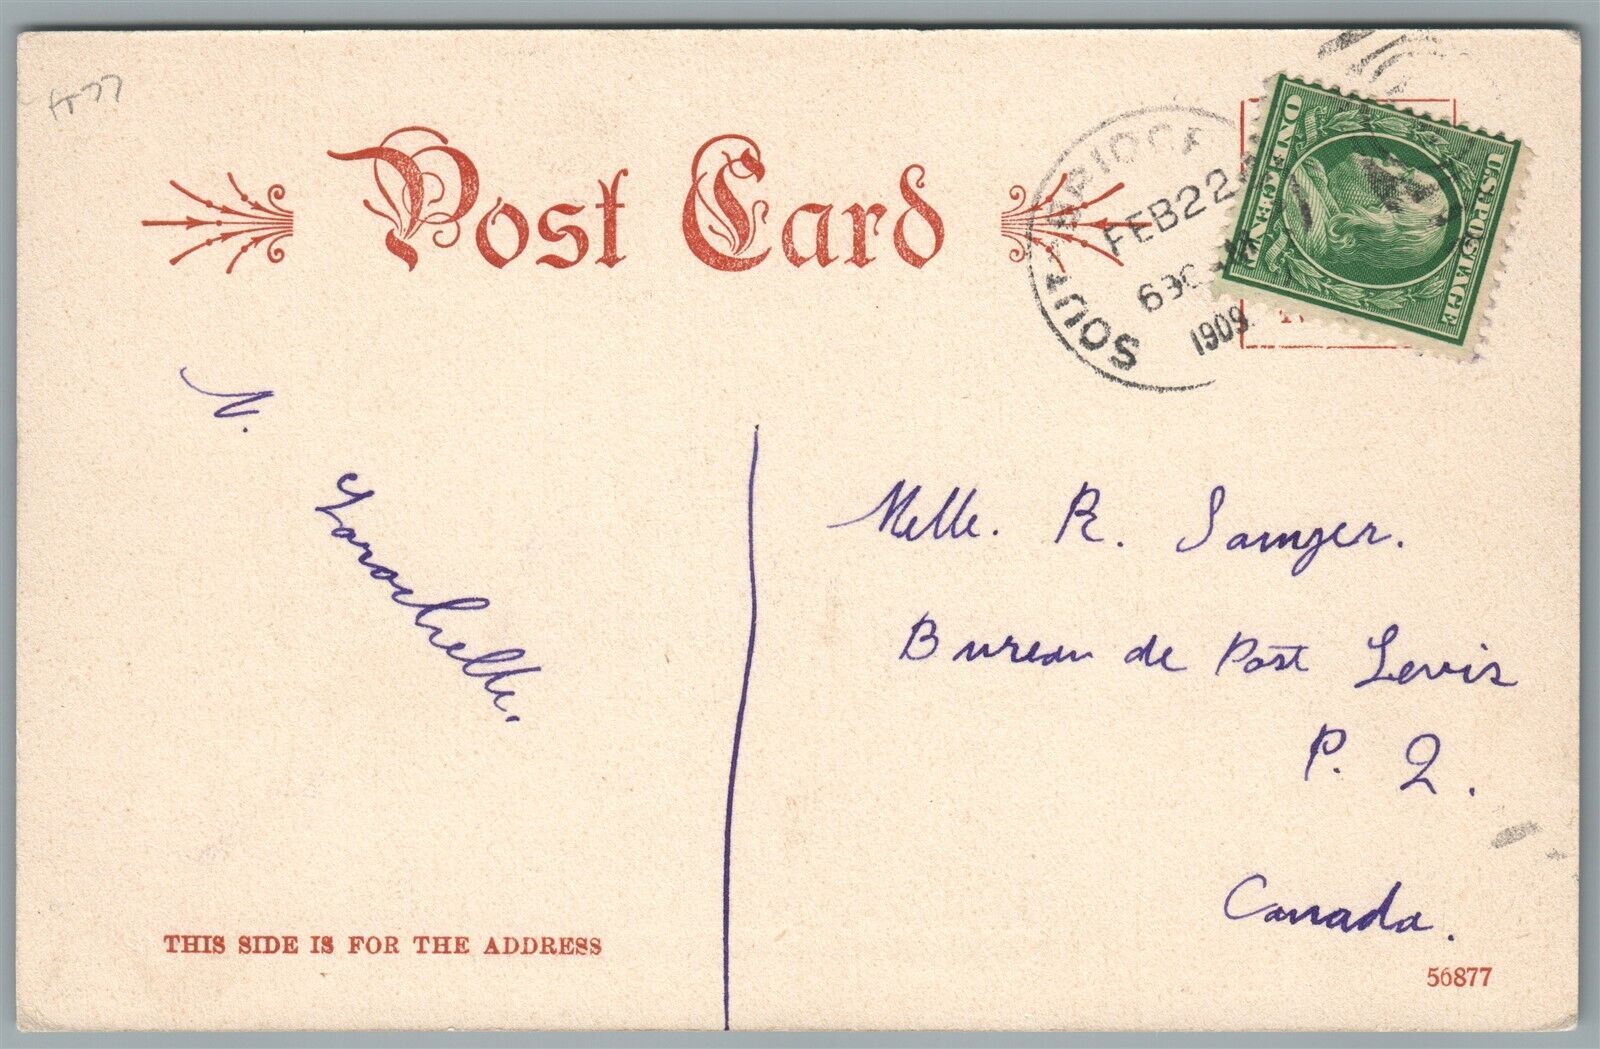 Post Card
SOUTHBRIDGE
FEB 22
6 30
1909
ONE CENT
U.S. POSTAGE
N.
Larochelle.
Melle. R.
Bureau de Post Levis
P. Q.
Canada.
THIS SIDE IS FOR THE ADDRESS
56877